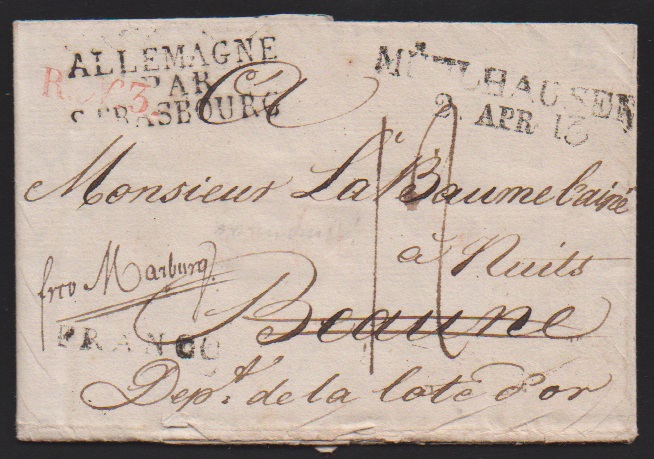 ALLEMAGNE
PAR
STRASBOURG
MÜHLHAUSEN
2 APR
A
Monsieur La Baume l'ainé
à Nuits
frco Marburg
Beaune
FRANCO
Dept. de la Cote d'or